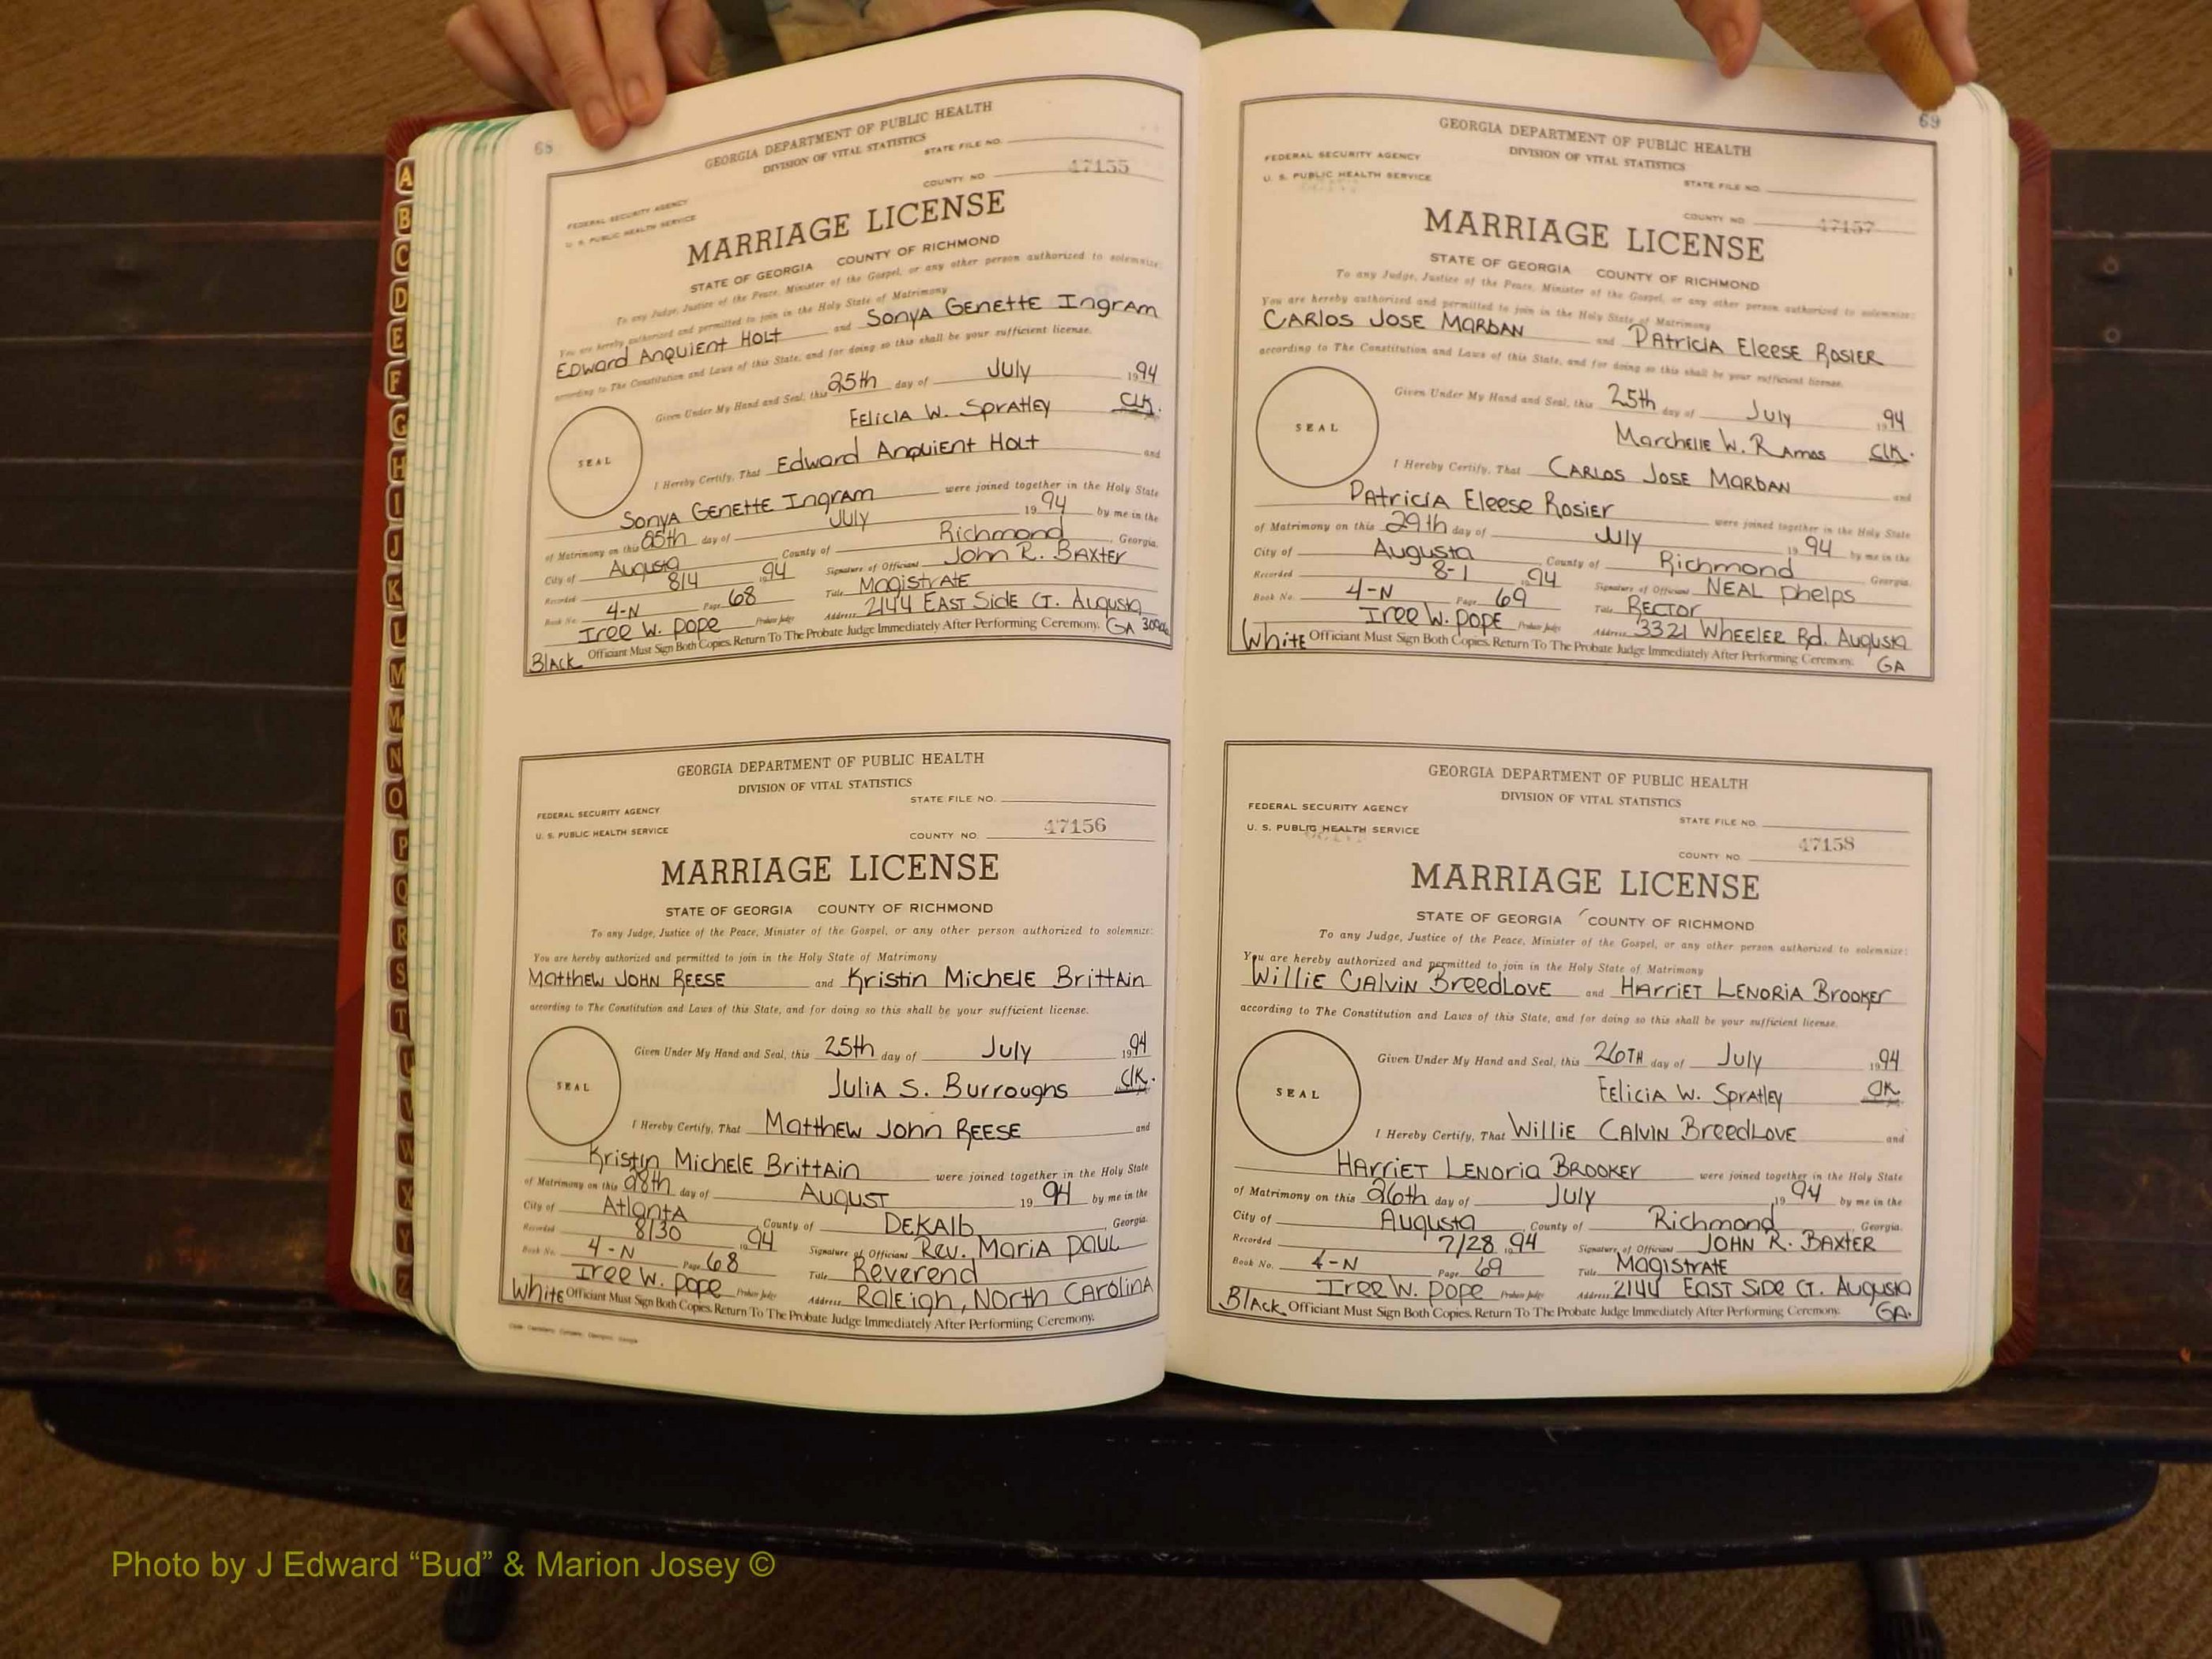 A
B
C
D
E
F
G
H
I
J
K
L
M
Mc
N
O
P
Q
R
S
T
U
V
W
X
Y
Z
68
GEORGIA DEPARTMENT OF PUBLIC HEALTH
DIVISION OF VITAL STATISTICS
STATE FILE NO.
FEDERAL SECURITY AGENCY
U. S. PUBLIC HEALTH SERVICE
COUNTY NO. 47155
MARRIAGE LICENSE
STATE OF GEORGIA COUNTY OF RICHMOND
To any Judge, Justice of the Peace, Minister of the Gospel, or any other person authorized to solemnize:
You are hereby authorized and permitted to join in the Holy State of Matrimony
Edward Anquient Holt and Sonya Genette Ingram
according to The Constitution and Laws of this State, and for doing so this shall be your sufficient license.
Given Under My Hand and Seal, this 25th day of July 1994
SEAL
Felicia W. Spratley Clk.
I Hereby Certify, That Edward Anquient Holt and
Sonya Genette Ingram were joined together in the Holy State
of Matrimony on this 25th day of July 19 94 by me in the
City of Augusta County of Richmond, Georgia.
Recorded 8/4 1994 Signature of Officiant John R. Baxter
Book No. 4-N Page 68 Title Magistrate
Iree W. Pope Probate Judge Address 2144 East Side Ct. Augusta
Black Officiant Must Sign Both Copies. Return To The Probate Judge Immediately After Performing Ceremony. GA
GEORGIA DEPARTMENT OF PUBLIC HEALTH
DIVISION OF VITAL STATISTICS
STATE FILE NO.
FEDERAL SECURITY AGENCY
U. S. PUBLIC HEALTH SERVICE
COUNTY NO. 47156
MARRIAGE LICENSE
STATE OF GEORGIA COUNTY OF RICHMOND
To any Judge, Justice of the Peace, Minister of the Gospel, or any other person authorized to solemnize:
You are hereby authorized and permitted to join in the Holy State of Matrimony
Matthew John Reese and Kristin Michele Brittain
according to The Constitution and Laws of this State, and for doing so this shall be your sufficient license.
Given Under My Hand and Seal, this 25th day of July 1994
SEAL
Julia S. Burroughs Clk.
I Hereby Certify, That Matthew John Reese and
Kristin Michele Brittain were joined together in the Holy State
of Matrimony on this 28th day of August 19 94 by me in the
City of Atlanta County of DeKalb, Georgia.
Recorded 8/30 1994 Signature of Officiant Rev. Maria Paul
Book No. 4-N Page 68 Title Reverend
Iree W. Pope Probate Judge Address Raleigh, North Carolina
White Officiant Must Sign Both Copies. Return To The Probate Judge Immediately After Performing Ceremony.
69
GEORGIA DEPARTMENT OF PUBLIC HEALTH
DIVISION OF VITAL STATISTICS
FEDERAL SECURITY AGENCY
U. S. PUBLIC HEALTH SERVICE
STATE FILE NO.
COUNTY NO. 47157
MARRIAGE LICENSE
STATE OF GEORGIA COUNTY OF RICHMOND
To any Judge, Justice of the Peace, Minister of the Gospel, or any other person authorized to solemnize:
You are hereby authorized and permitted to join in the Holy State of Matrimony
Carlos Jose Marban and Patricia Eleese Rosier
according to The Constitution and Laws of this State, and for doing so this shall be your sufficient license.
Given Under My Hand and Seal, this 25th day of July 1994
SEAL
Marchelle W. Ramos Clk.
I Hereby Certify, That Carlos Jose Marban and
Patricia Eleese Rosier were joined together in the Holy State
of Matrimony on this 29th day of July 19 94 by me in the
City of Augusta County of Richmond Georgia.
Recorded 8-1 1994 Signature of Officiant Neal Phelps
Book No. 4-N Page 69 Title Rector
Iree W. Pope Probate Judge Address 3321 Wheeler Rd. Augusta
White Officiant Must Sign Both Copies. Return To The Probate Judge Immediately After Performing Ceremony. GA
GEORGIA DEPARTMENT OF PUBLIC HEALTH
DIVISION OF VITAL STATISTICS
FEDERAL SECURITY AGENCY
U. S. PUBLIC HEALTH SERVICE
STATE FILE NO.
COUNTY NO. 47158
MARRIAGE LICENSE
STATE OF GEORGIA COUNTY OF RICHMOND
To any Judge, Justice of the Peace, Minister of the Gospel, or any other person authorized to solemnize:
You are hereby authorized and permitted to join in the Holy State of Matrimony
Willie Calvin Breedlove and Harriet Lenoria Brooker
according to The Constitution and Laws of this State, and for doing so this shall be your sufficient license.
Given Under My Hand and Seal, this 26TH day of July 1994
SEAL
Felicia W. Spratley Clk
I Hereby Certify, That Willie Calvin Breedlove and
Harriet Lenoria Brooker were joined together in the Holy State
of Matrimony on this 26th day of July 19 94 by me in the
City of Augusta, County of Richmond, Georgia.
Recorded 7/28 1994 Signature of Officiant John R. Baxter
Book No. 4-N Page 69 Title Magistrate
Iree W. Pope Probate Judge Address 2144 East Side Ct. Augusta
Black Officiant Must Sign Both Copies. Return To The Probate Judge Immediately After Performing Ceremony. GA.
Photo by J Edward “Bud” & Marion Josey ©